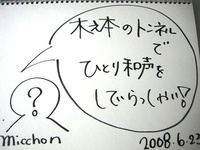 木え本のトンネル
で
ひとり和声を
しでらっしゃい!
?
micchon
2008.6.23